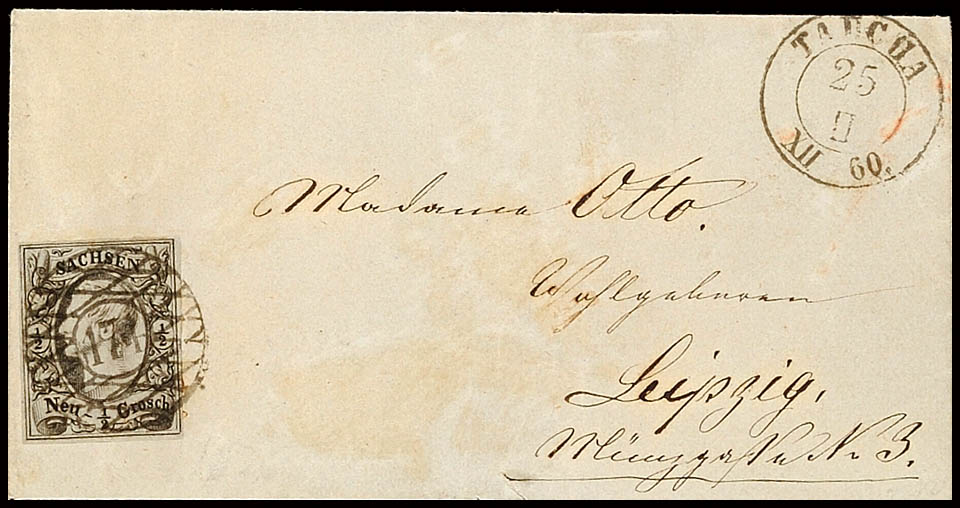 TAUCHA
25
II
XII 60.
Madame Otto.
Wohlgeboren
Leipzig,
Münzgasse No 3.
SACHSEN
½ ½
Neu-½ Grosch